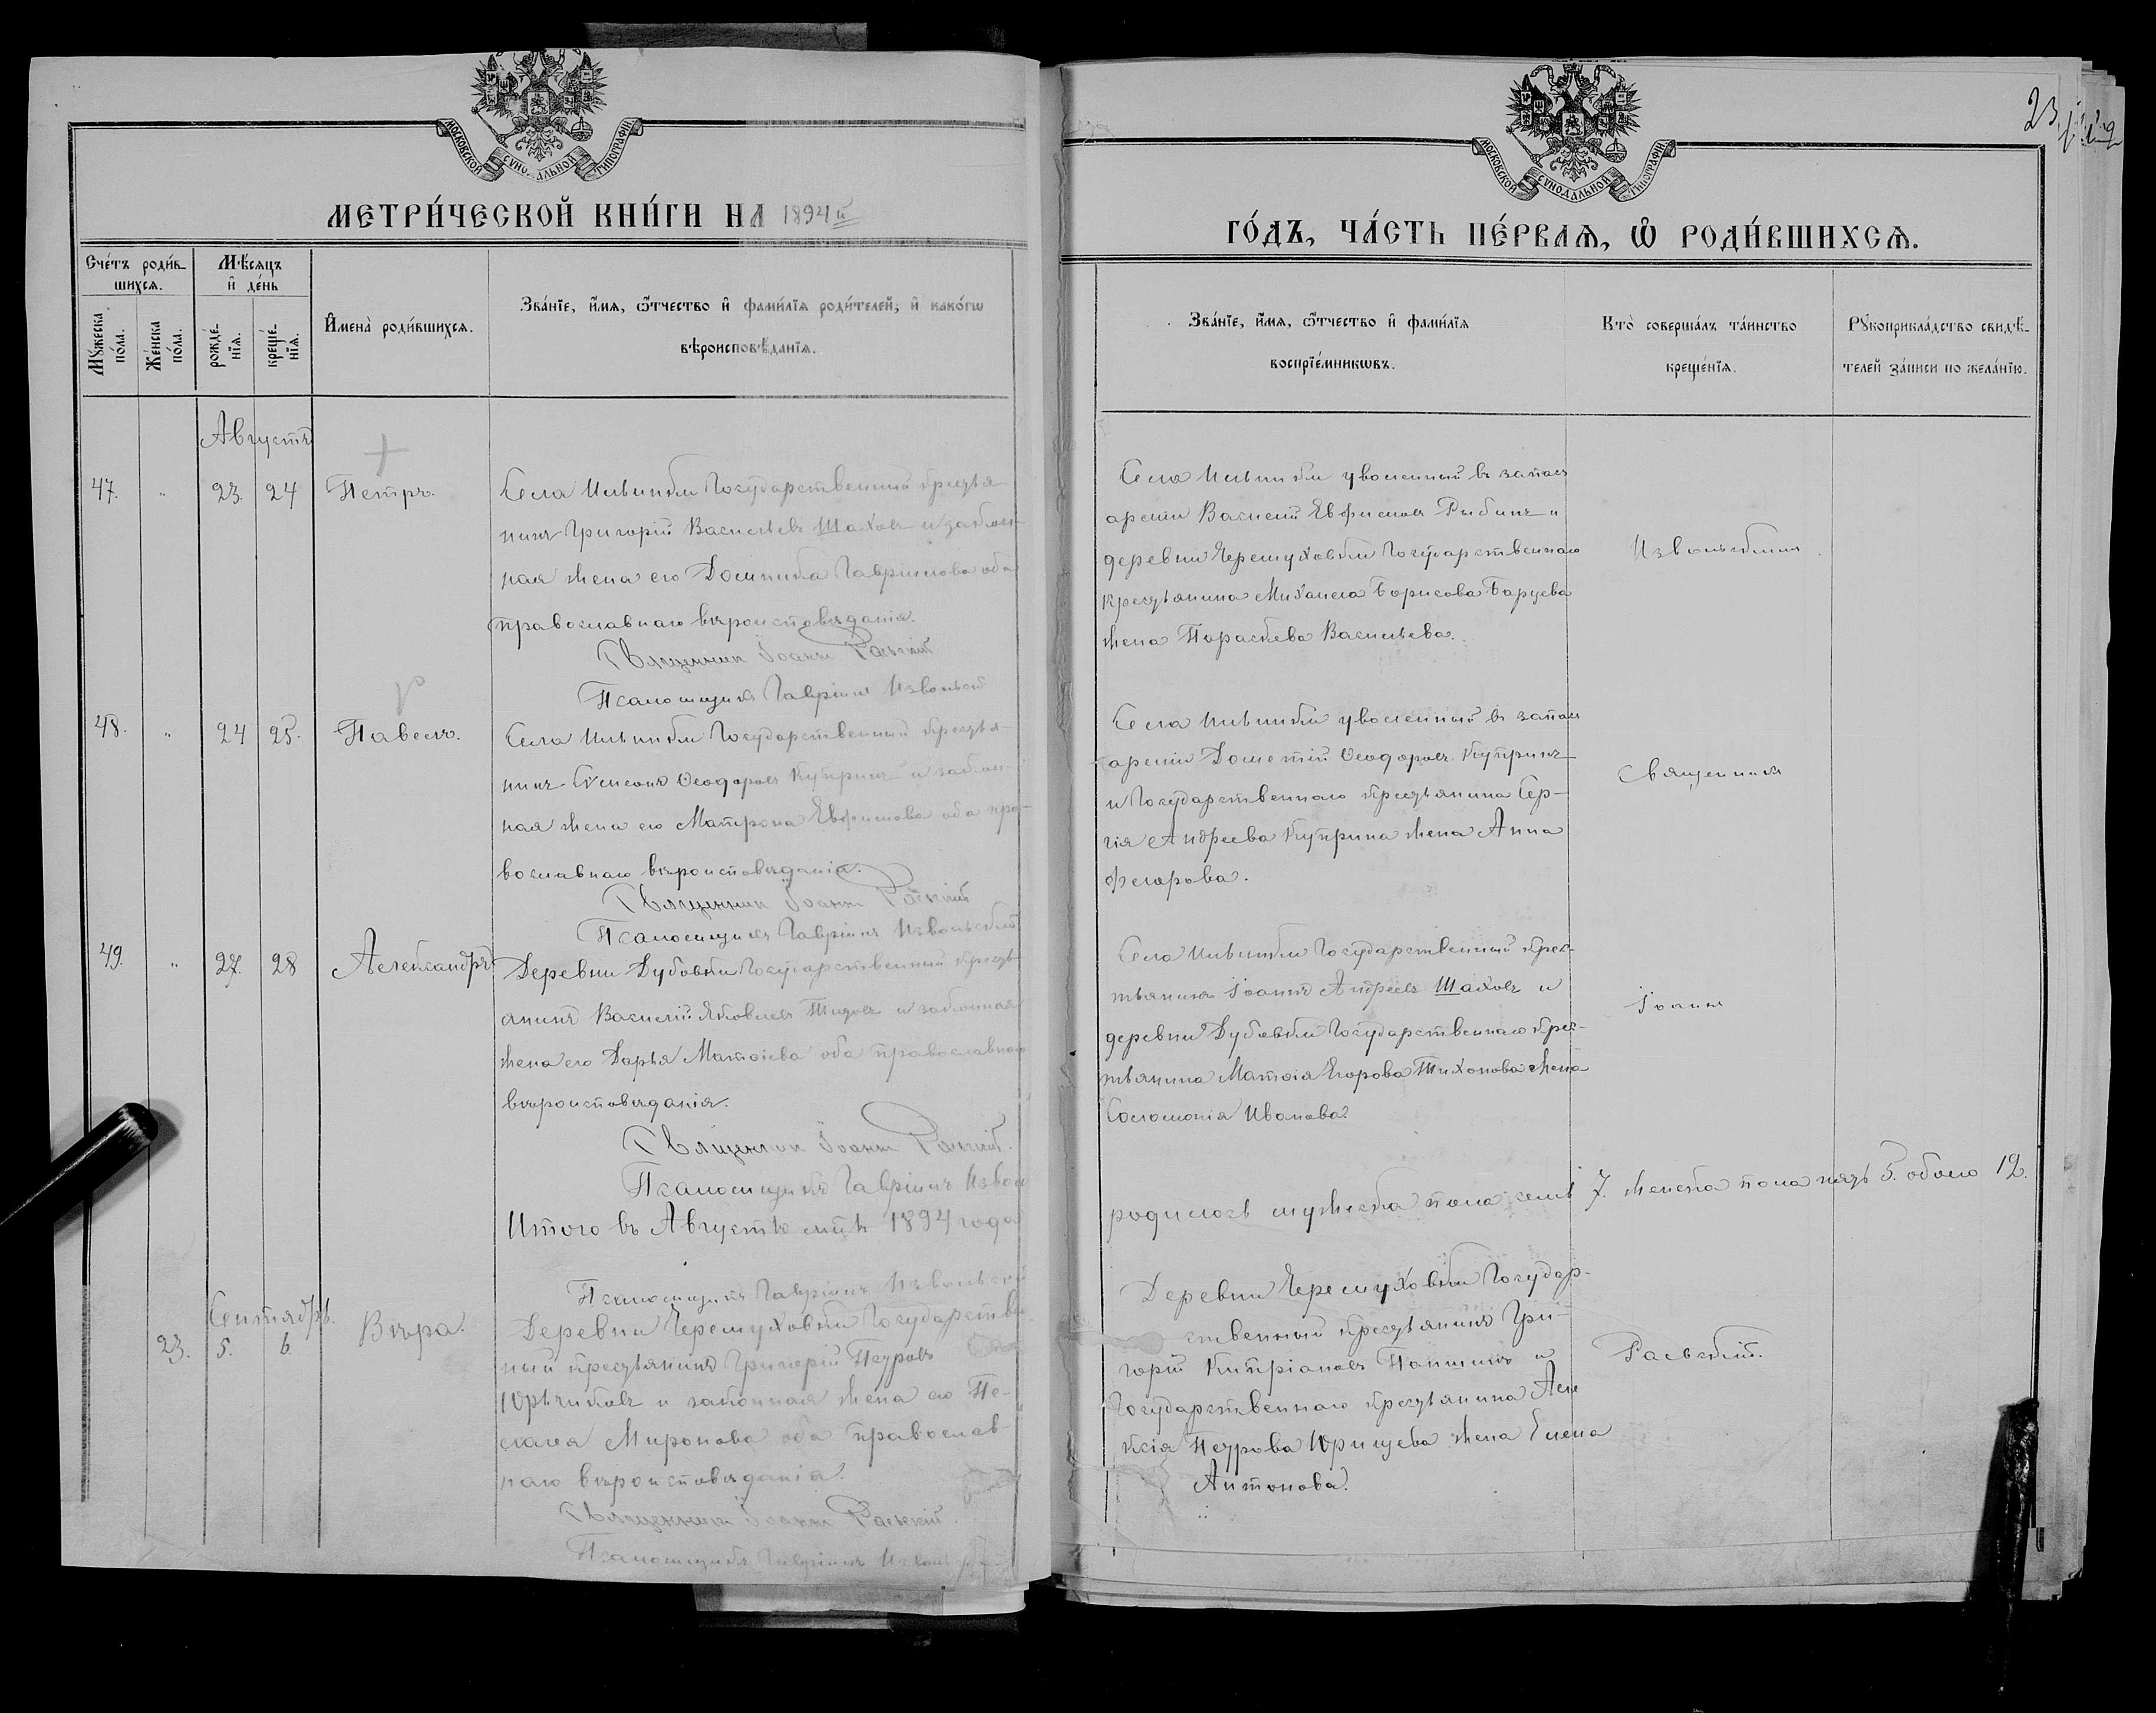 МОСКОВСКОЙ СѴНОДАЛЬНОЙ ТИПОГРАФІИ
МЕТРИ́ЧЕСКОЙ КНИ́ГИ НА 1894й
Сче́тъ роди́в-
шихся.
Мѣ́сяцъ
и҆ де́нь
Мꙋ́жеска
по́ла.
Же́нска
по́ла.
рожде́-
нїя.
креще́-
нїя.
И҆мена̀ роди́вшихся.
Зва́нїе, и҆́мя, ѻ҆́тчество и҆ фами́лїя роди́телей, и҆ како́гѡ
вѣроисповѣ́данїя.
Августъ
47. " 23. 24 Петръ.
Села Ильинки Государственный крестья-
нинъ Григорій Васильевъ Шаховъ и закон-
ная жена его Домника Гавриилова оба
православнаго вѣроисповѣданія.
Священник Іоанн Раевскій
Псаломщикъ Гавріилъ Извольскій
48. " 24 25. Павелъ.
Села Ильинки Государственный крестья-
нинъ Сѵмеонъ Ѳеодоровъ Купринъ и закон-
ная жена его Матрона Евфимова оба пра-
вославнаго вѣроисповѣданія.
Священник Іоанн Раевскій
Псаломщикъ Гавріилъ Извольскій
49. " 27. 28 Александръ
Деревни Дубовки Государственный кресть-
янинъ Василій Яковлевъ и законная
жена его Дарья Матѳіева оба православнаго
вѣроисповѣданія.
Священник Іоанн Раевскій.
Псаломщикъ Гавріилъ Извол
Итого въ Августѣ мцѣ 1894 года
Псаломщикъ Гавріилъ Извольскій
Сентябрь.
23. 5. 6. Вѣра.
Деревни Черемуховки Государствен-
ный крестьянинъ Григорій Петровъ
и законная жена его Пе-
лагея Миронова оба православ-
наго вѣроисповѣданія.
Священник Іоанн Раевскій.
Псаломщикъ Гавріилъ Извол
23
МОСКОВСКОЙ СѴНОДАЛЬНОЙ ТИПОГРАФІИ
ГО́ДЪ, ЧА́СТЬ ПЕ́РВАЯ, Ѡ҆ РОДИ́ВШИХСЯ.
Зва́нїе, и҆́мя, ѻ҆́тчество и҆ фами́лїя
воспрїе́мникѡвъ.
Кто̀ соверша́лъ та́инство
креще́нїя.
Рꙋкоприкла́дство свидѣ́-
телей за́писи по жела́нїю.
Села Ильинки уволенный въ запасъ
арміи Василій Евфимовъ Рыбинъ и
деревни Черемуховки Государственнаго
крестьянина Михаила Борисова Барцева
жена Параскева Васильева.
Села Ильинки уволенный въ запасъ
арміи Дометій Ѳеодоровъ Купринъ
и Государственнаго крестьянина Сер-
гія Андреева Куприна жена Анна
Священникъ
Села Ильинки Государственный крес-
тьянинъ Іоаннъ Андреевъ Шаховъ и
деревни Дубовки Государственнаго крес-
тьянина Матѳія Егорова Тихонова жена
Соломонія Иванова.
Іоаннъ
родилось мужеска пола семь 7. женска пола пять 5. обоего 12.
Деревни Черемуховки Государ-
ственный крестьянинъ Гри-
горій Кипріановъ Паншинъ и
Государственнаго крестьянина Але
ксія Петрова жена Елена
Антонова.
Раевскій.